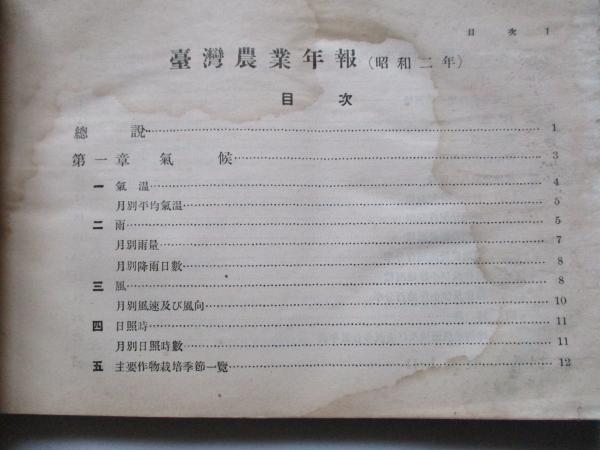 目次 1
臺灣農業年報（昭和二年）
目次
總說 1
第一章 氣候 3
一 氣溫 4
月別平均氣溫 5
二 雨 5
月別雨量 7
月別降雨日數 8
三 風 8
月別風速及び風向 10
四 日照時 11
月別日照時數 11
五 主要作物栽培季節一覽 12